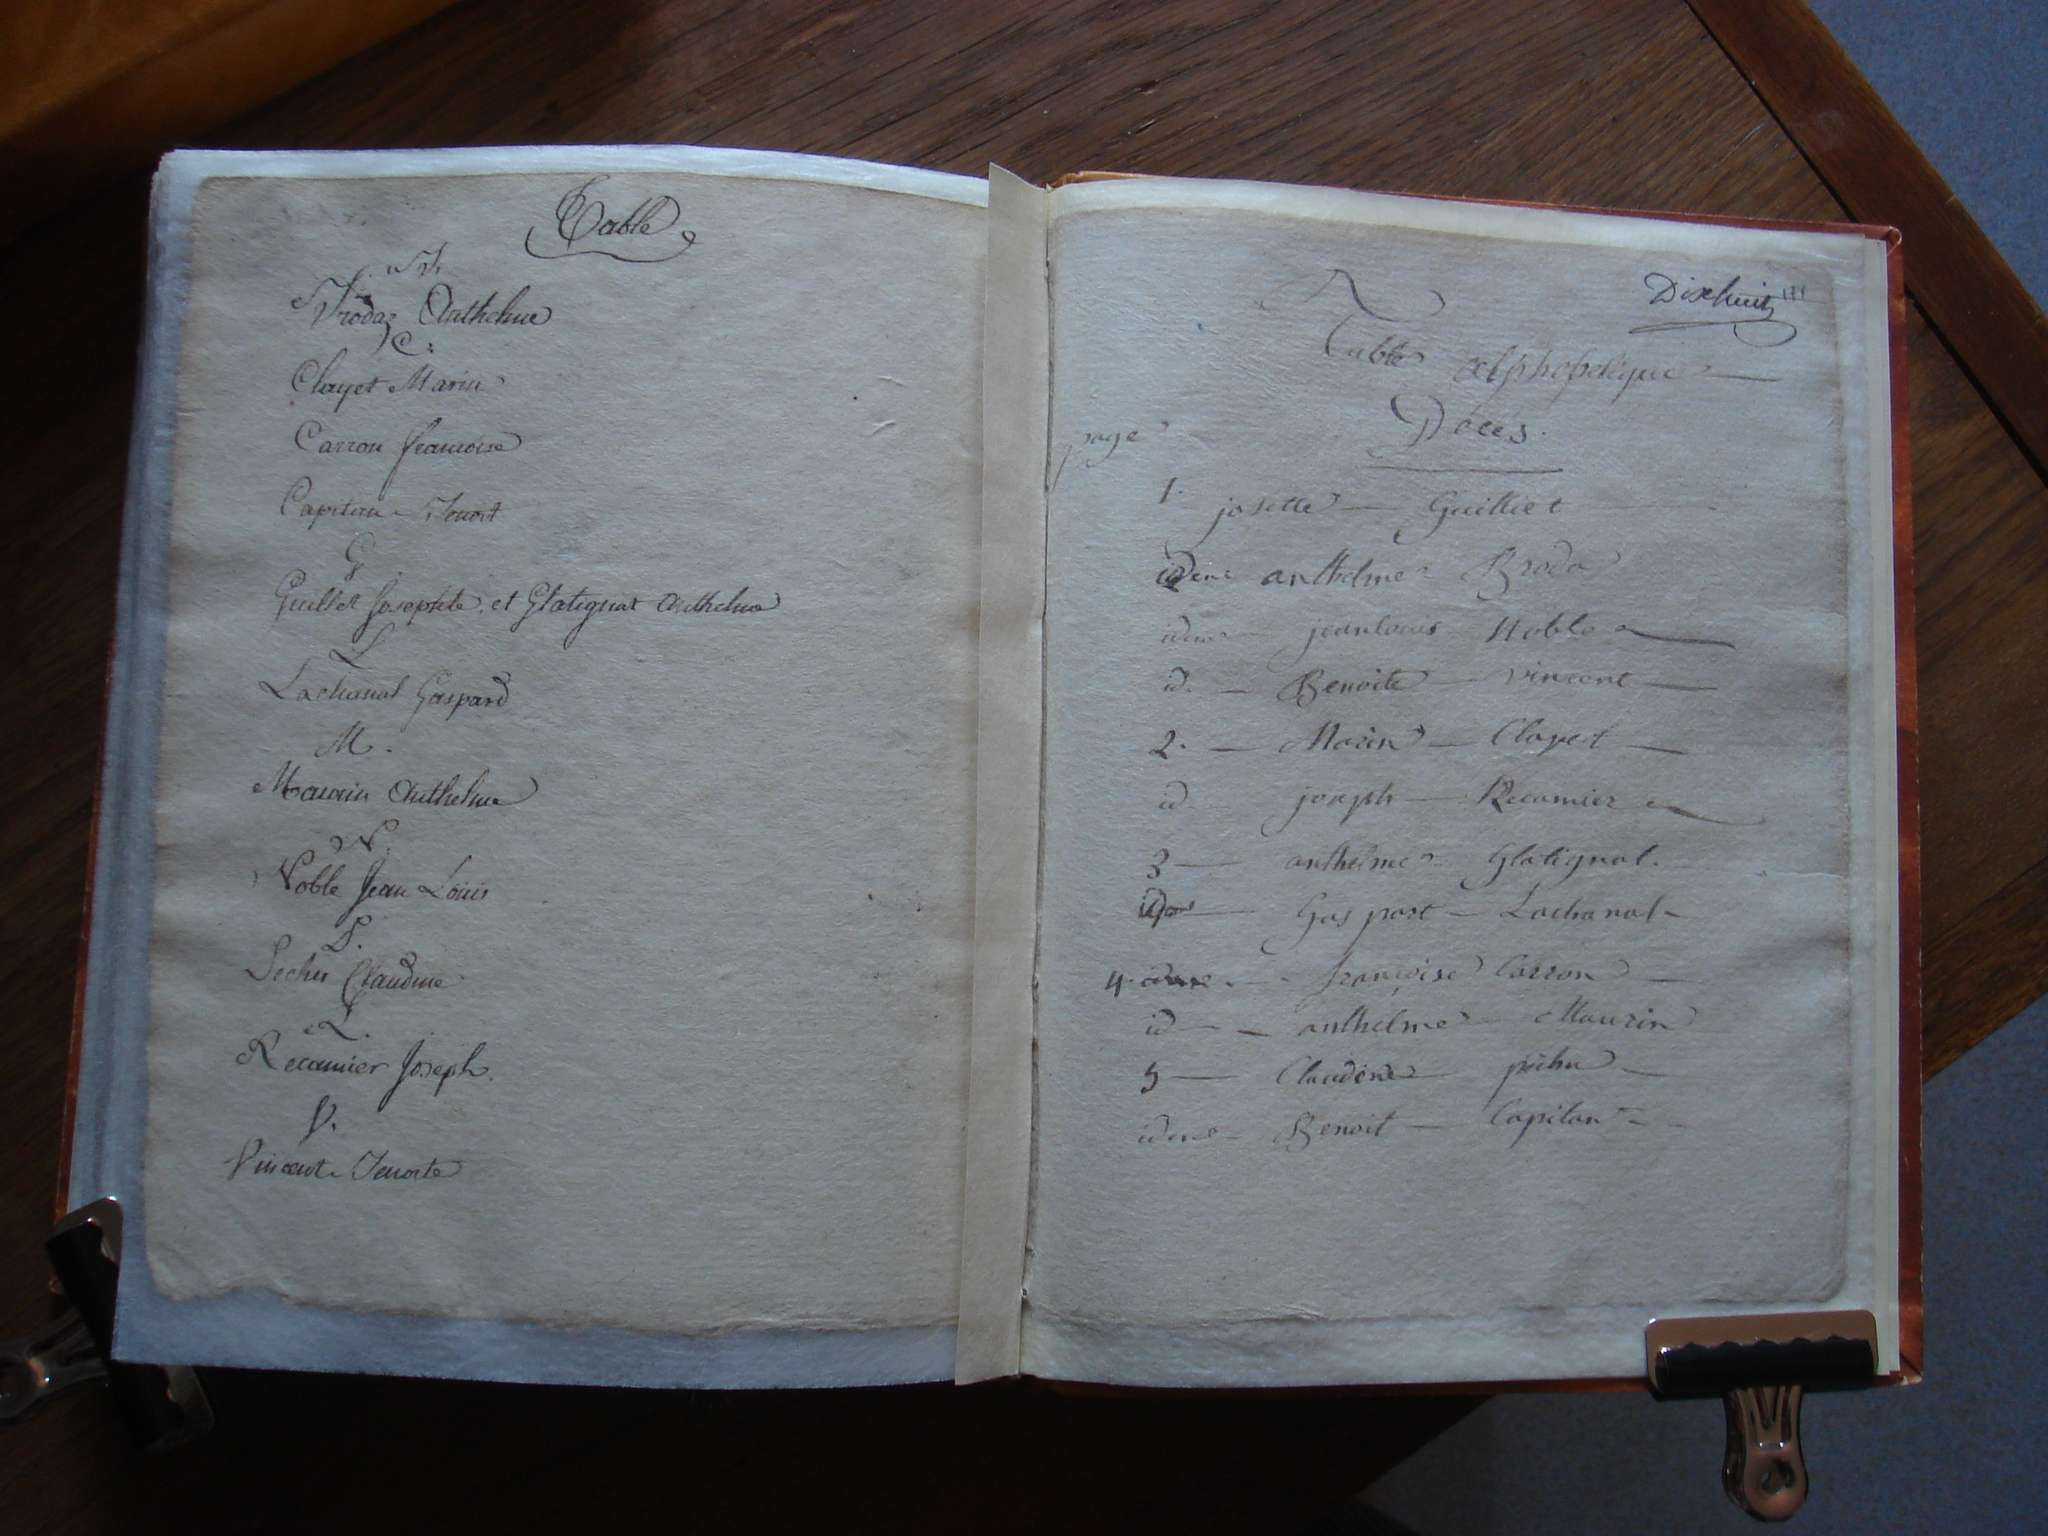 Table
B.
Brodaz Anthelme
C.
Clayet Marin
Carron francoise
Capitan Benoit
G
Guillet Josephte, et Glatignat Anthelme
L
Lachanal Gaspard
M.
Maurin Anthelme
N.
Noble Jean Louis
P.
Claudine
R.
Recamier Joseph.
V.
Vincent Benoite
Dixhuit
Table
Décés.
page
1.
josette Guilliet
idem anthelme Broda
idem jeanlouis Noble
id. Benoite vincent
2. Marin Clayet
id joseph Recamier
3 anthelme Glatignat.
idem Gaspart Lachanal
4. francoise Carron
id anthelme Maurin
5 Claudine
idem Benoit Capitan